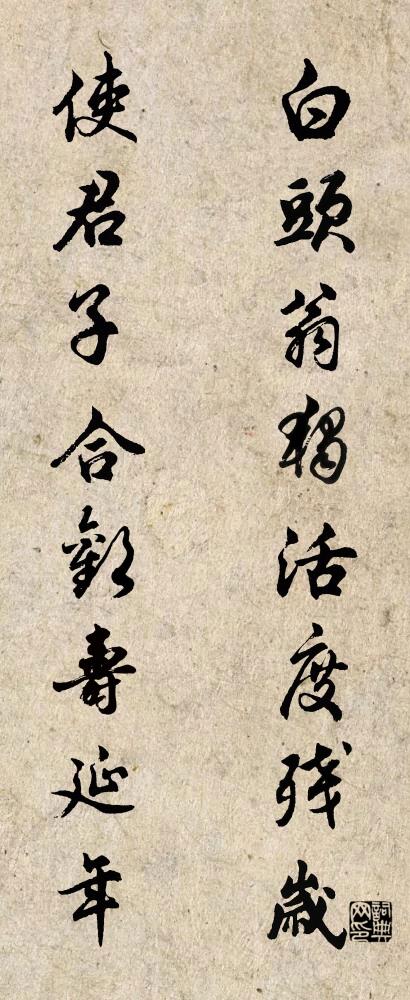 白頭翁獨活度残歲
使君子合歡壽延年
詞典网印